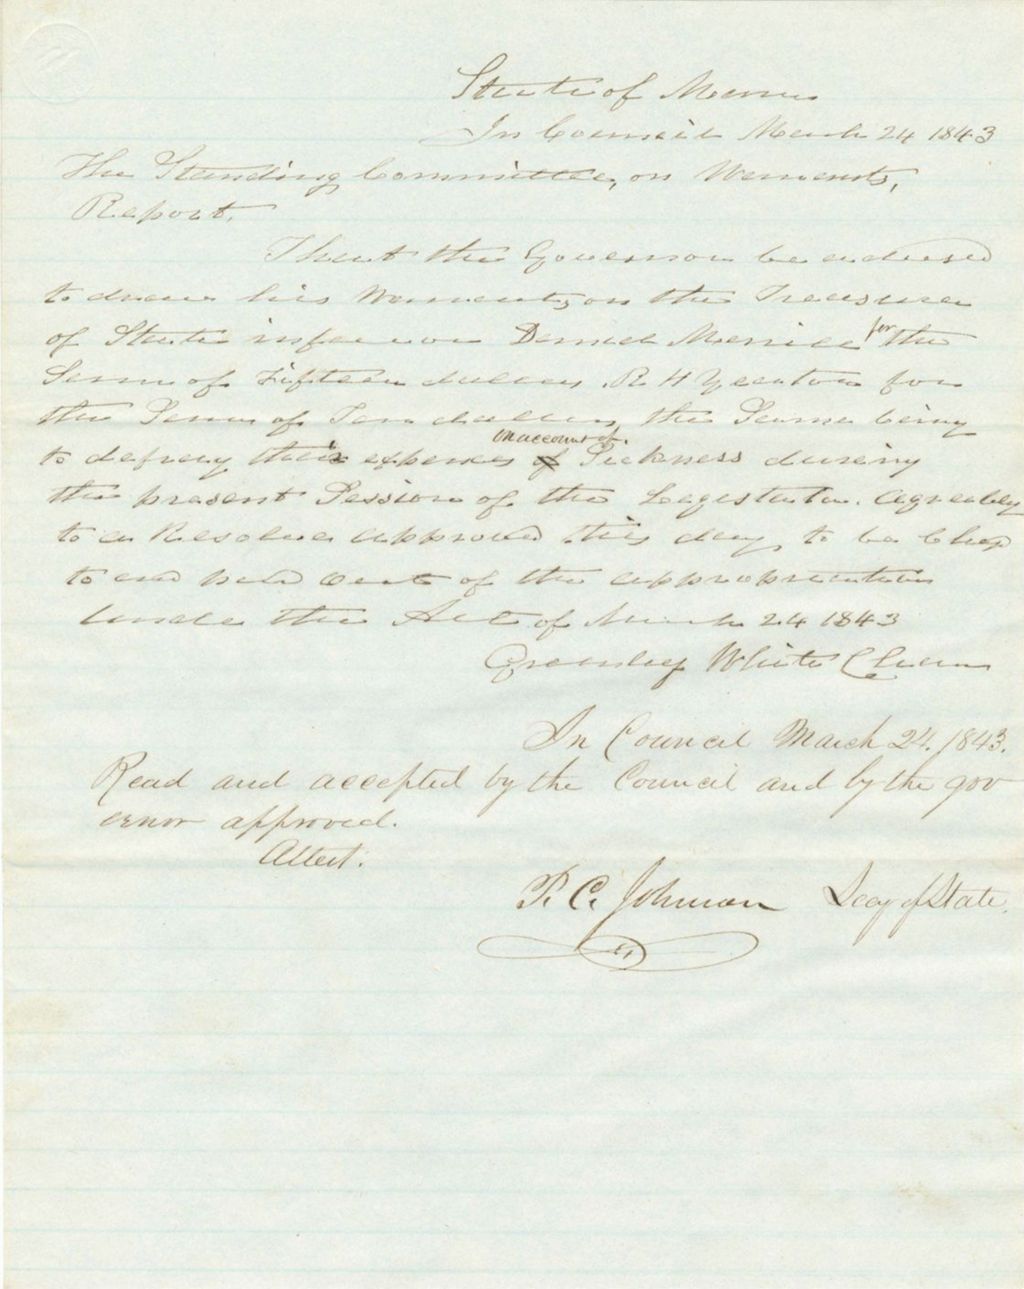 State of Maine
In Council March 24 1843
The Standing Committee, on Warrants,
Report.
That the Governor be advised
to draw his Warrants, on the Treasurer
of State in favor Daniel Merrill for the
Sum of Fifteen dollars. R H Yeaton for
the Sum of Ten dollars, the Same being
to defray their expenses on account of Sickness during
the present Session of the Legislature. Agreeably
to a Resolve approved this day, to be Charged
to and paid out of the appropriation
under the Act of March 24 1843
Greenley White Chairm
In Council March 24. 1843.
Read and accepted by the Council and by the gov
ernor approved.
Attest.
P. C. Johnson Secy of State.